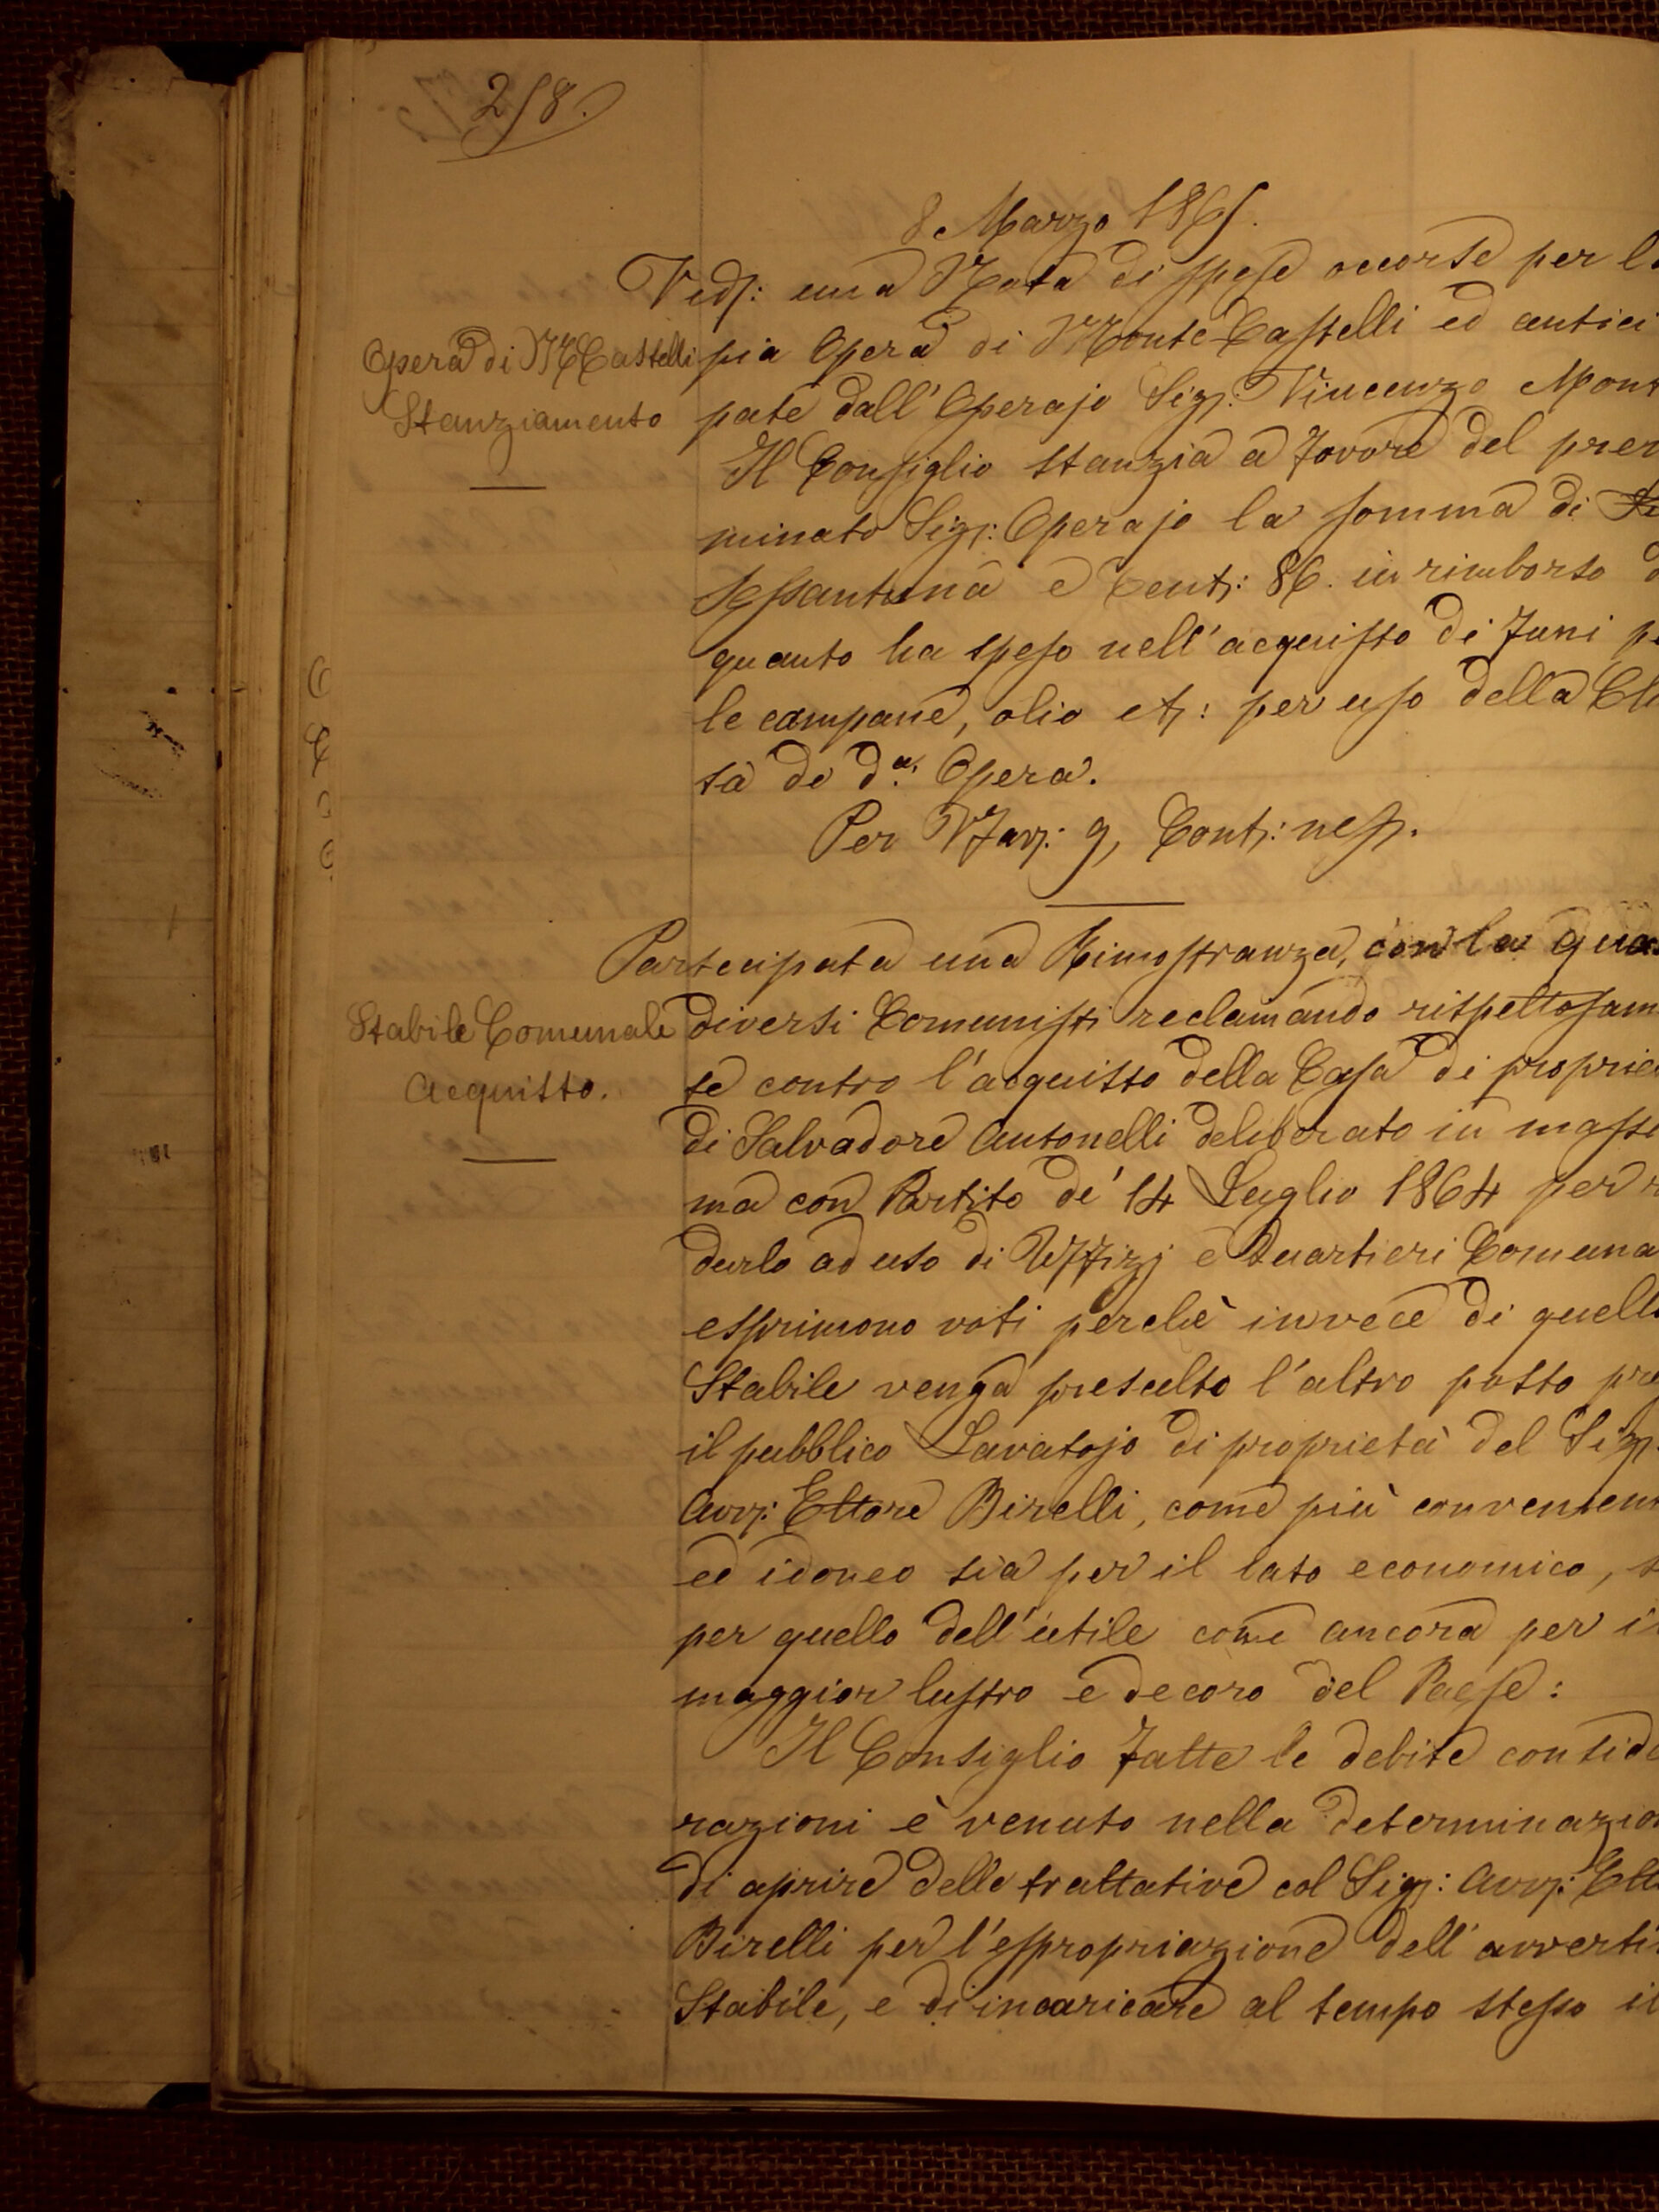 258.
8 Marzo 1865.
Vedj: una Nota di spese occorse per l
Opera di M Castelli
Stanziamento
pia Opera di Monte-Castelli ed antici
pate dall' Operajo Sigj: Vincenzo Mon
Il Consiglio stanzia a favore del pre
minato Sigj: Operajo la somma di
Sessantuna e Centj: 86. in rimborso d
quanto ha speso nell' acquisto di Funi p
le campane, olio etj: per uso della Ch
sa de da. Opera.
Per Vfavj: 9, Contj: nessj.
Partecipata una Rimostranza, con la qua
Stabile Comunale
Acquisto.
diversi Comunisti reclamando rispettosam
te contro l'acquisto della Casa di proprie
di Salvadore Antonelli deliberato in massi
ma con Partito de' 14 Luglio 1864 per r
durlo ad uso di Uffizj e Quartieri Comuna
esprimono voti perchè invece di quell
Stabile venga prescelto l'altro posto pre
il pubblico Lavatojo di proprietà del Sigj:
Avvj: Ettore Birelli, come più convenien
ed idoneo sia per il lato economico, s
per quello dell'utile come ancora per i
maggior lustro e decoro del Paese:
Il Consiglio fatte le debite conside
razioni è venuto nella determinazio
di aprire delle trattative col Sigj: Avvj: Ett
Birelli per l'espropriazione dell' avverti
Stabile, e di incaricare al tempo stesso il